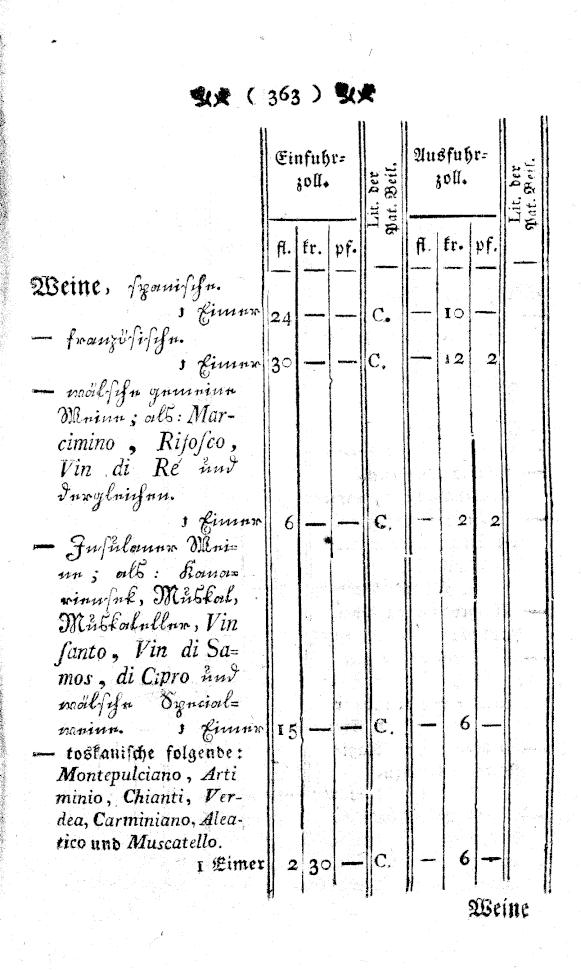 ( 363 )
Einfuhr=
zoll.
Lit. der
Pat. Beil.
Ausfuhr=
zoll.
Lit. der
Pat. Beil.
fl. kr. pf. fl. kr. pf.
— — — — — — — —
Weine, spanische.
1 Eimer 24 — — C. — 10 —
— französische.
1 Eimer 30 — — C. — 12 2
— wälsche gemeine
Weine; als: Mar-
cimino, Rifosco,
Vin di Ré und
dergleichen.
1 Eimer 6 — — C. — 2 2
— Insulaner Wei=
ne; als: Kana=
riensek, Muskat,
Muskateller, Vin
santo, Vin di Sa=
mos, di Cipro und
wälsche Special=
weine. 1 Eimer 15 — — C. — 6 —
— toskanische folgende:
Montepulciano, Arti
minio, Chianti, Ver-
dea, Carminiano, Alea-
tico und Muscatello.
1 Eimer 2 30 — C. — 6 —
Weine